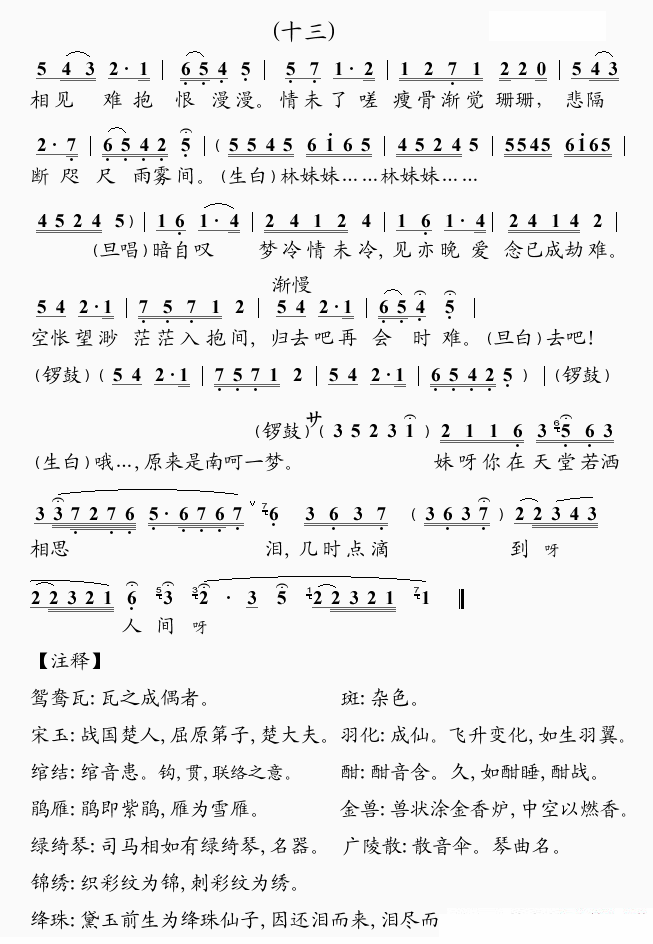 (十三)
5 4 3 2·1 | 6 5 4 5 | 5 7 1·2 | 1 2 7 1 2 2 0 | 5 4 3
相见 难抱 恨 漫漫。情未了嗟 瘦骨渐觉 珊珊, 悲隔
2·7 | 6 5 4 2 5 | (5 5 4 5 6 1 6 5 | 4 5 2 4 5 | 5545 6165 |
断 咫 尺 雨雾间。(生白)林妹妹……林妹妹……
4 5 2 4 5) | 1 6 1·4 | 2 4 1 2 4 | 1 6 1·4 | 2 4 1 4 2 |
(旦唱)暗自叹 梦冷情未冷, 见亦晚 爱 念已成劫难。
渐慢
5 4 2·1 | 7 5 7 1 2 | 5 4 2·1 | 6 5 4 5 |
空怅望渺 茫茫入抱间, 归去吧再 会 时 难。(旦白)去吧!
(锣鼓)(5 4 2·1 | 7 5 7 1 2 | 5 4 2·1 | 6 5 4 2 5) | (锣鼓)
(锣鼓)サ(3 5 2 3 1) 2 1 1 6 3 6 5 6 3
(生白)哦…,原来是南呵一梦。 妹呀你在天堂若洒
3 3 7 2 7 6 5·6 7 6 7 ˅ 7 6 3 6 3 7 (3 6 3 7) 2 2 3 4 3
相思 泪, 几时点滴 到 呀
2 2 3 2 1 6 5 3 3 2 · 3 5 1 2 2 3 2 1 7 1
人 间 呀
【注释】
鸳鸯瓦: 瓦之成偶者。 斑: 杂色。
宋玉: 战国楚人, 屈原第子, 楚大夫。 羽化: 成仙。飞升变化, 如生羽翼。
绾结: 绾音患。钩, 贯, 联络之意。 酣: 酣音含。久, 如酣睡, 酣战。
鹃雁: 鹃即紫鹃, 雁为雪雁。 金兽: 兽状涂金香炉, 中空以燃香。
绿绮琴: 司马相如有绿绮琴, 名器。 广陵散: 散音伞。琴曲名。
锦绣: 织彩纹为锦, 刺彩纹为绣。
绛珠: 黛玉前生为绛珠仙子, 因还泪而来, 泪尽而